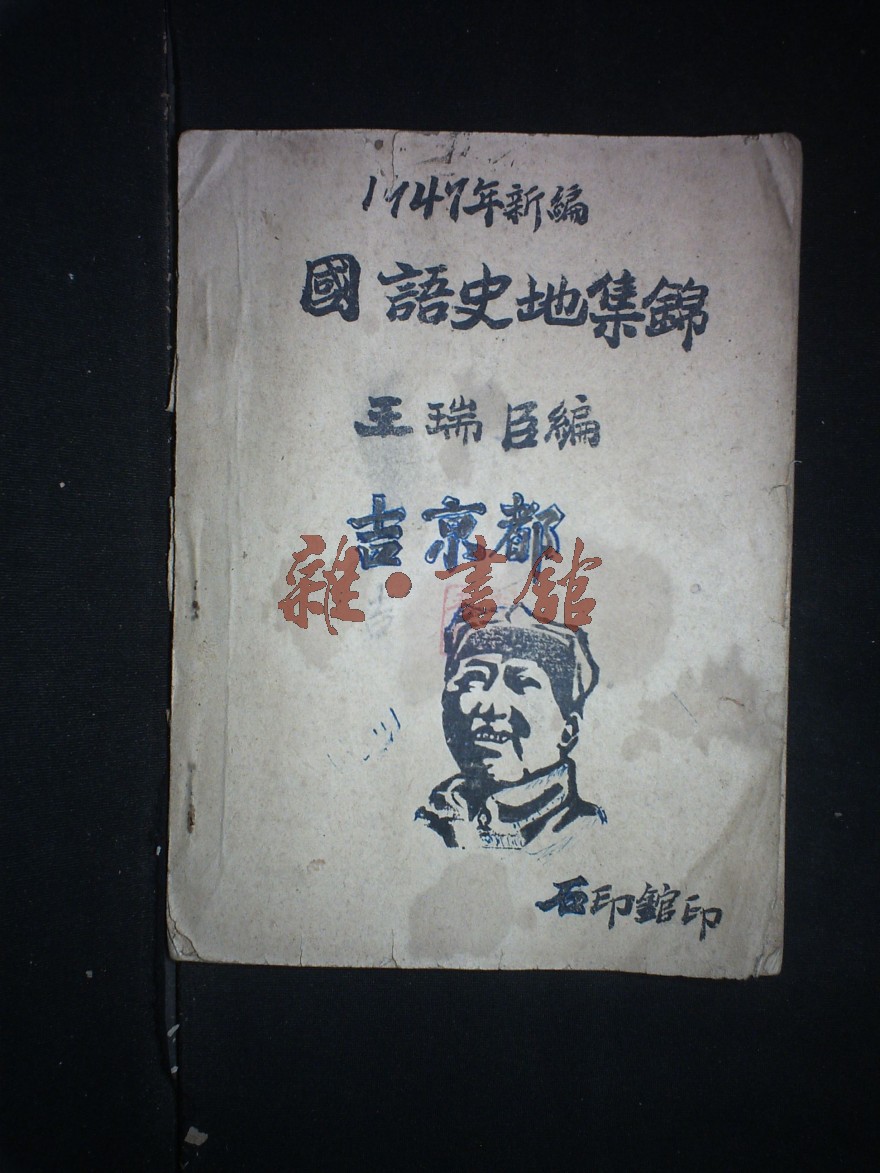 1947年新編
國語史地集錦
王瑞臣編
吉京都
雜·書館
石印館印